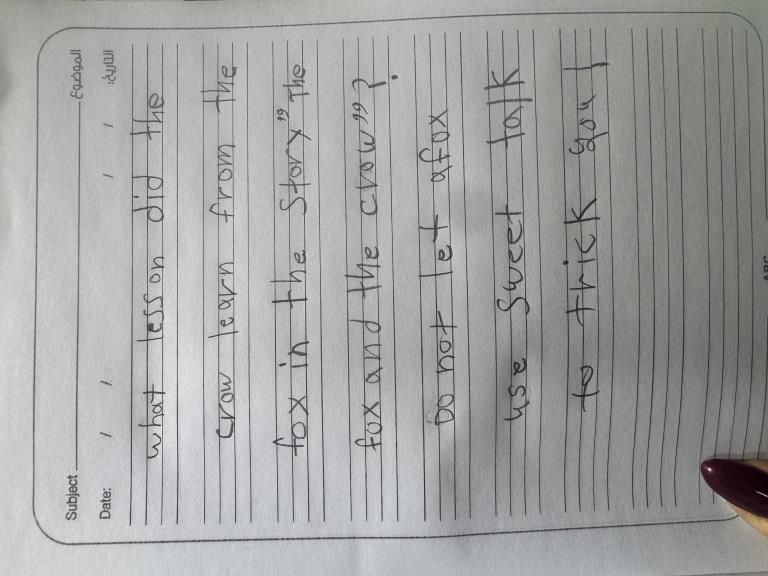 Subject الموضوع
Date: / / / / التاريخ:
what lesson did the
crow learn from the
fox in the Story" The
fox and the crow"?
Do not let afox
use sweet talk
to trick you!
ABC